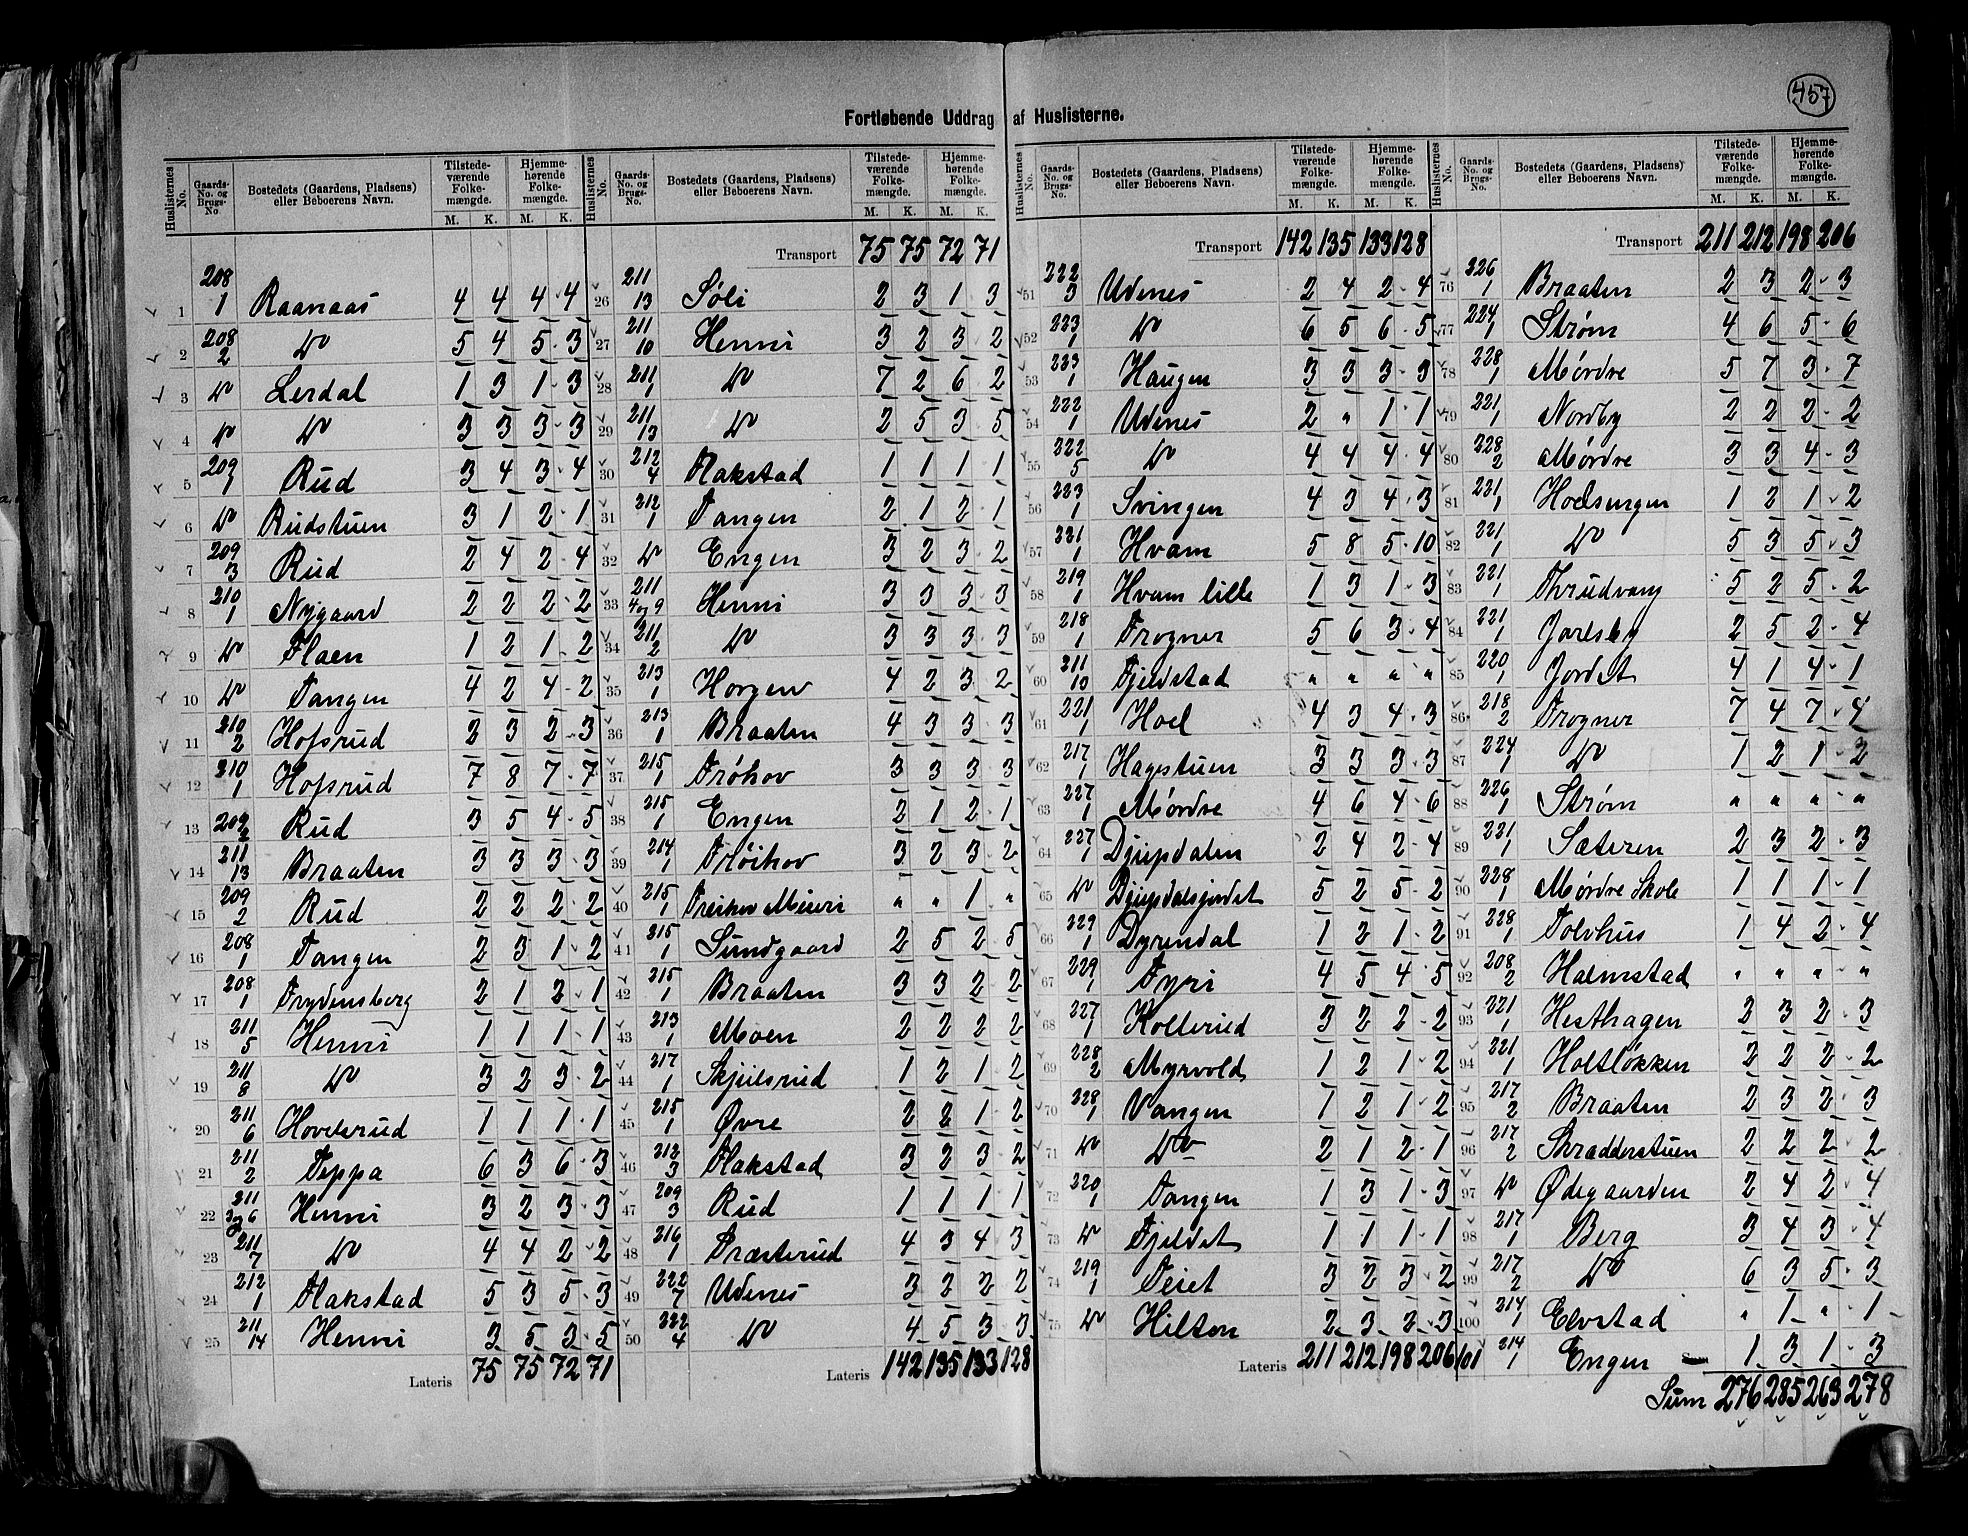 457
Fortløbende Uddrag af Huslisterne.
Huslisternes No. Gaards-No. og Brugs-No. Bostedets (Gaardens, Pladsens) eller Beboerens Navn. Tilstedeværende Folkemængde. M. K. Hjemmehørende Folkemængde. M. K.
1 208/1 Raanaas 4 4 4 4
2 208/2 Do 5 4 5 3
3 Do Lerdal 1 3 1 3
4 Do Do 3 3 3 3
5 209/1 Rud 3 4 3 4
6 Do Rudstuen 3 1 2 1
7 209/3 Rud 2 4 2 4
8 210/1 Nygaard 2 2 2 2
9 Do Flaen 1 2 1 2
10 Do Tangen 4 2 4 2
11 210/2 Hofsrud 2 3 2 3
12 210/1 Hofsrud 7 8 7 7
13 209/2 Rud 3 5 4 5
14 211/13 Braaten 3 3 3 3
15 209/2 Rud 2 2 2 2
16 208/1 Tangen 2 3 1 2
17 208/1 Frydensberg 2 1 2 1
18 211/5 Henni 1 1 1 1
19 211/8 Do 3 2 3 2
20 211/6 Hovelsrud 1 1 1 1
21 211/2 Teppa 6 3 6 3
22 211/3 og 6 Henni 3 2 3 3
23 211/7 Do 4 4 2 2
24 212/1 Flakstad 5 3 5 3
25 211/14 Henni 3 5 3 5
Lateris 75 75 72 71
Huslisternes No. Gaards-No. og Brugs-No. Bostedets (Gaardens, Pladsens) eller Beboerens Navn. Tilstedeværende Folkemængde. M. K. Hjemmehørende Folkemængde. M. K.
Transport 75 75 72 71
26 211/13 Søli 2 3 1 3
27 211/10 Henni 3 2 3 2
28 211/1 Do 7 2 6 2
29 211/13 Do 2 5 3 5
30 212/4 Flakstad 1 1 1 1
31 212/1 Tangen 2 1 2 1
32 Do Engen 3 2 3 2
33 211/4 og 9 Henni 3 3 3 3
34 211/2 Do 3 3 3 3
35 213/1 Horgen 4 2 3 2
36 213/1 Braaten 4 3 3 3
37 215/1 Frøhov 3 3 3 3
38 215/1 Engen 2 1 2 1
39 214/1 Frøihov 3 2 3 2
40 215/1 Freihov Meieri " " 1 "
41 215/1 Sundgaard 2 5 2 5
42 215/1 Braaten 3 3 2 2
43 213/1 Moen 2 2 2 2
44 217/1 Skjulsrud 1 2 1 2
45 215/1 Øvre 2 2 1 2
46 212/3 Flakstad 3 2 3 2
47 209/3 Rud 1 1 1 1
48 216/1 Præsterud 4 3 4 3
49 222/7 Udenes 3 2 2 2
50 222/4 Do 4 5 3 3
Lateris 142 135 133 128
Huslisternes No. Gaards-No. og Brugs-No. Bostedets (Gaardens, Pladsens) eller Beboerens Navn. Tilstedeværende Folkemængde. M. K. Hjemmehørende Folkemængde. M. K.
Transport 142 135 133 128
51 222/3 Udenes 2 4 2 4
52 223/1 Do 6 5 6 5
53 223/1 Haugen 3 3 3 3
54 222/1 Udenes 2 " 1 1
55 222/5 Do 4 4 4 4
56 223/1 Svingen 4 3 4 3
57 221/1 Hvam 5 8 5 10
58 219/1 Hvam lille 1 3 1 3
59 218/1 Frogner 5 6 3 4
60 211/10 Fjeldstad " " " "
61 221/1 Hoel 4 3 4 3
62 217/1 Hagestuen 3 3 3 3
63 227/1 Mørdre 4 6 4 6
64 227/1 Djupdalen 2 4 2 4
65 Do Djupdalsjordet 5 2 5 2
66 229/1 Dyrendal 1 2 1 2
67 229/1 Fyri 4 5 4 5
68 227/1 Kolterud 3 2 2 2
69 228/2 Myrvold 1 2 1 2
70 228/1 Vangen 1 2 1 2
71 Do Do 2 1 2 1
72 220/1 Tangen 1 3 1 3
73 Do Fjeldet 1 1 1 1
74 219/1 Teiet 3 2 3 2
75 Do Hilton 2 3 2 3
Lateris 211 212 198 206
Huslisternes No. Gaards-No. og Brugs-No. Bostedets (Gaardens, Pladsens) eller Beboerens Navn. Tilstedeværende Folkemængde. M. K. Hjemmehørende Folkemængde. M. K.
Transport 211 212 198 206
76 226/1 Braaten 2 3 2 3
77 224/1 Strøm 4 6 5 6
78 228/1 Mørdre 5 7 3 7
79 221/1 Nordby 2 2 2 2
80 228/2 Mørdre 3 3 4 3
81 221/1 Hoelsengen 1 2 1 2
82 221/1 Do 5 3 5 3
83 221/1 Thrudvang 5 2 5 2
84 221/1 Jarlsby 2 5 2 4
85 220/1 Jordet 4 1 4 1
86 218/2 Frogner 7 4 7 4
87 224/1 Do 1 2 1 2
88 226/1 Strøm " " " "
89 221/1 Sæteren 2 3 2 3
90 228/1 Mørdre Skole 1 1 1 1
91 228/1 Tolvhus 1 4 2 4
92 208/2 Halmstad " " " "
93 221/1 Hesthagen 2 3 2 3
94 221/1 Holtløkken 2 2 2 2
95 217/2 Braaten 2 3 2 3
96 217/2 Skradderstuen 2 2 2 2
97 Do Ødegaarden 2 4 2 4
98 217/1 Berg 3 4 3 4
99 217/2 Do 6 3 5 3
100 214/1 Elvstad " 1 " 1
101 214/1 Engen 1 3 1 3
Sum 276 285 263 278